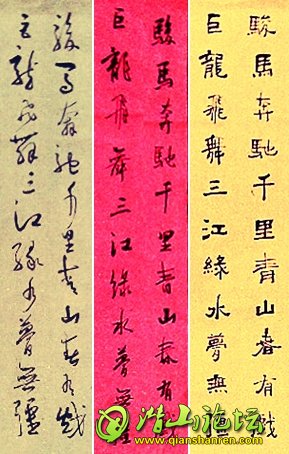 駿馬奔馳千里青山春有
巨龍飛舞三江綠水夢無疆
駿馬奔馳千里青山春有
巨龍飛舞三江綠水夢無疆
駿馬奔馳千里青山春有
巨龍飛舞三江綠水夢無疆
潜山论坛
www.qianshanren.com